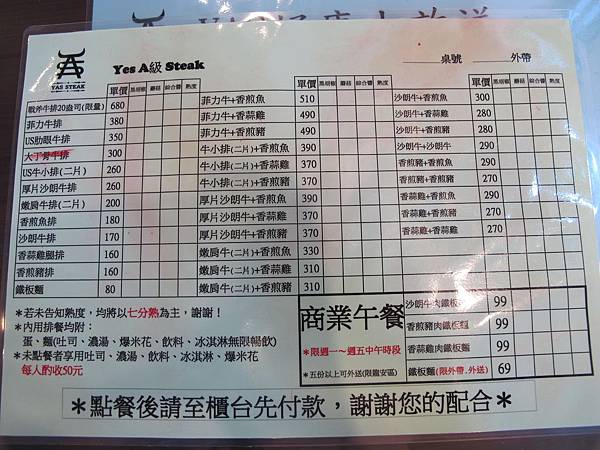 YAS STEAK
Yes A級 Steak
桌號 外帶
單價 黑胡椒 蘑菇 綜合醬 熟度
戰斧牛排20盎司(限量) 680
菲力牛排 380
US肋眼牛排 350
大丁骨牛排 300
US牛小排(二片) 260
厚片沙朗牛排 260
嫩肩牛排(二片) 200
香煎魚排 180
沙朗牛排 170
香蒜雞腿排 160
香煎豬排 160
鐵板麵 80
單價 黑胡椒 蘑菇 綜合醬 熟度
菲力牛+香煎魚 510
菲力牛+香蒜雞 490
菲力牛+香煎豬 490
牛小排(二片)+香煎魚 390
牛小排(二片)+香蒜雞 370
牛小排(二片)+香煎豬 370
厚片沙朗牛+香煎魚 390
厚片沙朗牛+香蒜雞 370
厚片沙朗牛+香煎豬 370
嫩肩牛(二片)+香煎魚 330
嫩肩牛(二片)+香蒜雞 310
嫩肩牛(二片)+香煎豬 310
單價 黑胡椒 蘑菇 綜合醬 熟度
沙朗牛+香煎魚 300
沙朗牛+香蒜雞 280
沙朗牛+香煎豬 280
沙朗牛+沙朗牛 290
香煎魚+香煎魚 290
香蒜雞+香煎魚 290
香蒜雞+香煎豬 270
香蒜雞+香蒜雞 270
＊若未告知熟度，均將以七分熟為主，謝謝！
＊內用排餐均附：
蛋、麵(吐司、濃湯、爆米花、飲料、冰淇淋無限暢飲)
＊未點餐者享用吐司、濃湯、飲料、冰淇淋、爆米花
每人酌收50元
商業午餐
＊限週一～週五中午時段
＊五份以上可外送(限雞安區)
沙朗牛肉鐵板麵 99
香煎豬肉鐵板麵 99
香蒜雞肉鐵板麵 99
鐵板麵(限外帶.外送) 69
＊點餐後請至櫃台先付款，謝謝您的配合＊